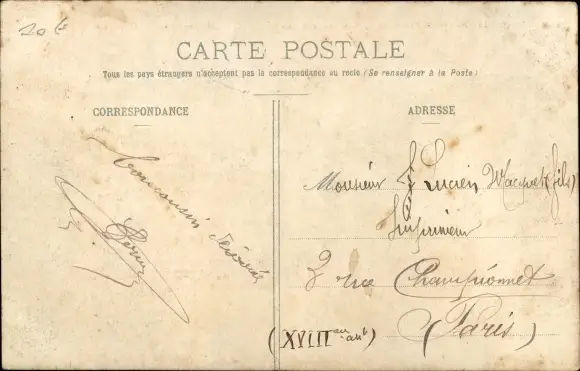 20 f
CARTE POSTALE
Tous les pays étrangers n'acceptent pas la correspondance au recto (Se renseigner à la Poste)
CORRESPONDANCE
ADRESSE
Monsieur Lucien Macquet (fils)
Imprimeur
3 rue Championnet
(Paris)
(XVIII